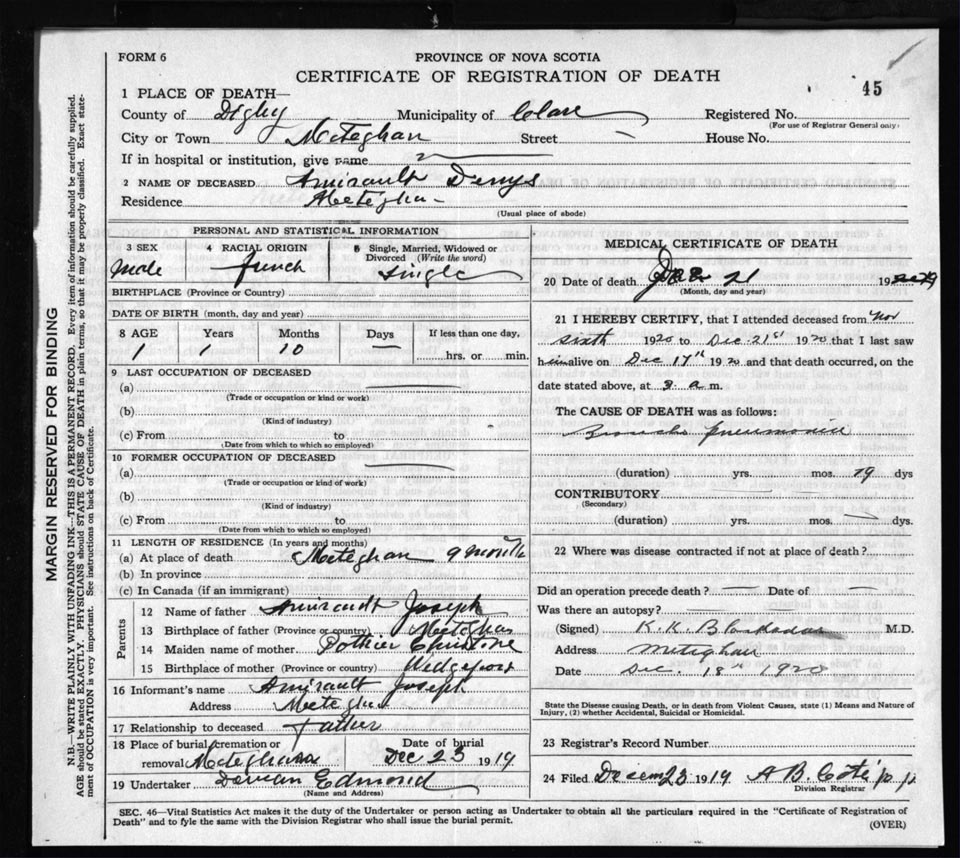 FORM 6
PROVINCE OF NOVA SCOTIA
CERTIFICATE OF REGISTRATION OF DEATH
45
1 PLACE OF DEATH—
County of Digby Municipality of Clare Registered No.
(For use of Registrar General only)
City or Town Meteghan Street — House No.
If in hospital or institution, give name
2 NAME OF DECEASED Amirault Denys
Residence Meteghan
(Usual place of abode)
PERSONAL AND STATISTICAL INFORMATION
3 SEX 4 RACIAL ORIGIN 5 Single, Married, Widowed or
Divorced (Write the word)
Male french single
BIRTHPLACE (Province or Country)
DATE OF BIRTH (month, day and year)
8 AGE Years Months Days If less than one day,
1 1 10 — hrs. or min.
9 LAST OCCUPATION OF DECEASED
(a)
(Trade or occupation or kind or work)
(b)
(Kind of industry)
(c) From to
(Date from which to which so employed)
10 FORMER OCCUPATION OF DECEASED
(a)
(Trade or occupation or kind of work)
(b)
(Kind of industry)
(c) From to
(Date from which to which so employed)
11 LENGTH OF RESIDENCE (In years and months)
(a) At place of death Meteghan 9 months
(b) In province
(c) In Canada (if an immigrant)
Parents
12 Name of father Amirault Joseph
13 Birthplace of father (Province or country) Meteghan
14 Maiden name of mother Pothier Christine
15 Birthplace of mother (Province or country) Wedgeport
16 Informant's name Amirault Joseph
Address Meteghan
17 Relationship to deceased Father
18 Place of burial, cremation or Date of burial
removal Meteghan Dec 23 1919
19 Undertaker Edmond
(Name and Address)
MEDICAL CERTIFICATE OF DEATH
20 Date of death Dec 21 19
(Month, day and year)
21 I HEREBY CERTIFY, that I attended deceased from Nov
sixth 1920 to Dec. 21st 1920 that I last saw
him alive on Dec 17th 1920 and that death occurred, on the
date stated above, at 3 a. m.
The CAUSE OF DEATH was as follows:
Broncho pneumonia
(duration) yrs. mos. 19 dys
CONTRIBUTORY
(Secondary)
(duration) yrs. mos. dys.
22 Where was disease contracted if not at place of death?
Did an operation precede death? Date of
Was there an autopsy?
(Signed) K. K. M.D.
Address Meteghan
Date Dec. 18th 1920
State the Disease causing Death, or in death from Violent Causes, state (1) Means and Nature of
Injury, (2) whether Accidental, Suicidal or Homicidal.
23 Registrar's Record Number
24 Filed Decem 23 1919 A B
Division Registrar
SEC. 46—Vital Statistics Act makes it the duty of the Undertaker or person acting as Undertaker to obtain all the particulars required in the "Certificate of Registration of
Death" and to fyle the same with the Division Registrar who shall issue the burial permit.
(OVER)
MARGIN RESERVED FOR BINDING
N.B.—WRITE PLAINLY WITH UNFADING INK—THIS IS A PERMANENT RECORD. Every item of information should be carefully supplied.
AGE should be stated EXACTLY. PHYSICIANS should STATE CAUSE OF DEATH in plain terms, so that it may be properly classified. Exact state-
ment of OCCUPATION is very important. See instructions on back of Certificate.